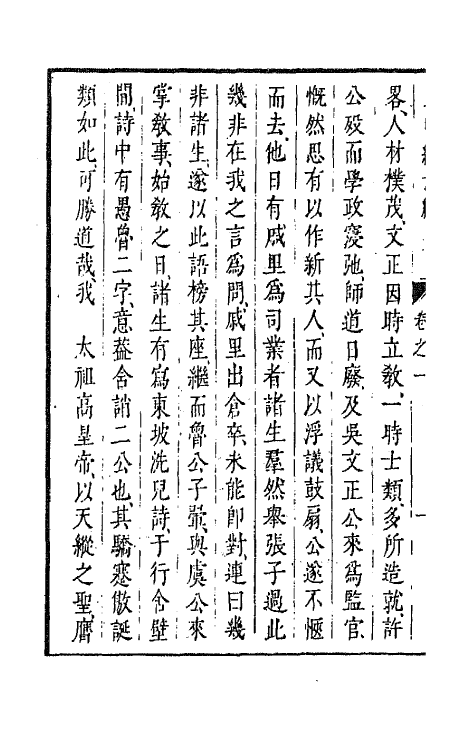 卷之一
畧人材樸茂文正因時立敎一時士類多所造就許
公殁而學政寖弛師道日廢及吳文正公來爲監官
慨然思有以作新其人而又以浮議鼓扇公遂不愜
而去他日有戚里爲司業者諸生羣然舉張子過此
幾非在我之言爲問戚里出倉卒未能卽對連曰幾
非諸生遂以此語榜其座繼而魯公子翬與虞公來
掌敎事始敎之日諸生有寫東坡洗兒詩于行舍壁
間詩中有愚魯二字意蓋含誚二公也其驕蹇傲誕
類如此可勝道哉我 太祖高皇帝以天縱之聖膺